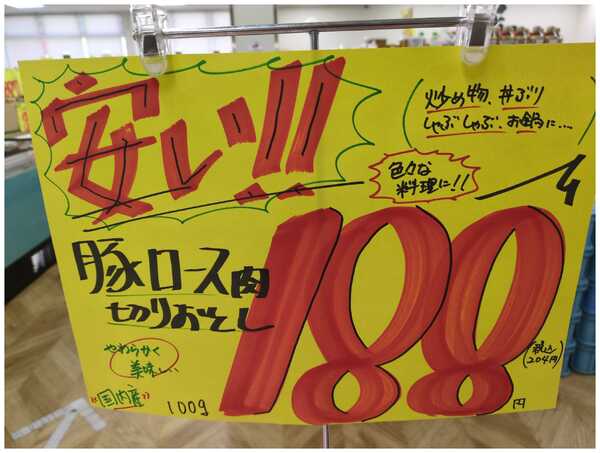 安い!!
炒め物、丼ぶり
しゃぶしゃぶ、お鍋に...
色々な
料理に!!
豚ロース肉
切りおとし
やわらかく
美味しい
"国内産"
100g
188
円
(税込
204円)